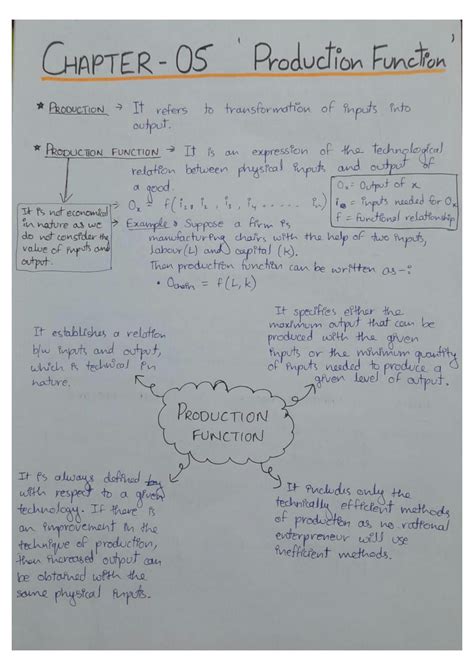 CHAPTER - 05 ' Production Function '
* PRODUCTION → It refers to transformation of inputs into
output.
* PRODUCTION FUNCTION → It is an expression of the technological
relation between physical inputs and output of
a good.
Ox = Output of x
= inputs needed for Ox
f = Functional relationship
It is not economical
in nature as we
do not consider the
value of inputs and
output.
→ Ox = f(i₁, i₂, i₃, i₄, ..... iₙ)
→ Example : Suppose a firm is
manufacturing chairs with the help of two inputs,
labour(L) and capital (K).
Then production function can be written as -:
• Ochair = f(L, K)
It establishes a relation
b/w inputs and output,
which is technical in
nature.
It specifies either the
maximum output that can be
produced with the given
inputs or the minimum quantity
of inputs needed to produce a
given level of output.
PRODUCTION
FUNCTION
It is always defined
with respect to a given
technology. If there is
an improvement in the
technique of production,
then increased output can
be obtained with the
same physical inputs.
It includes only the
technically efficient methods
of production as no rational
enterpreneur will use
inefficient methods.